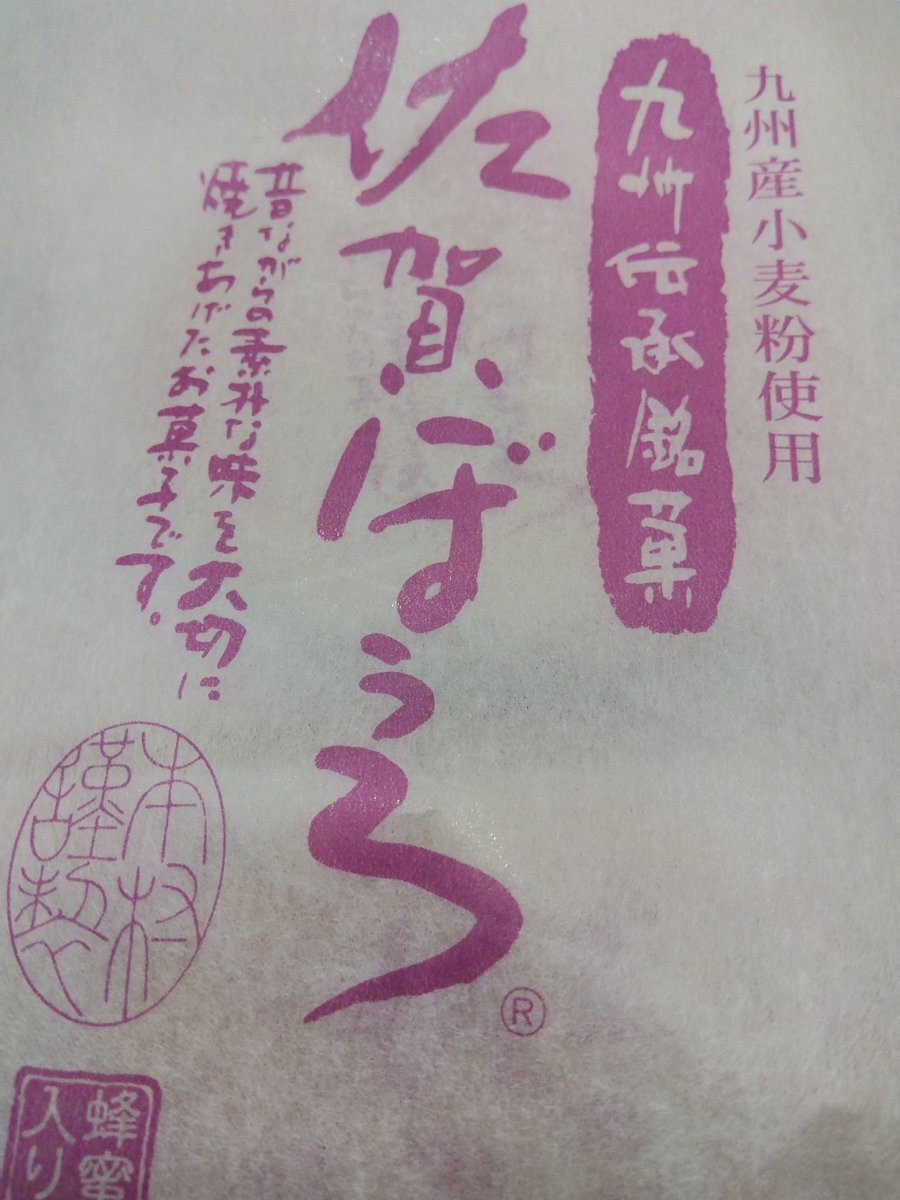 九州産小麦粉使用
九州伝承銘菓
佐賀ぼうろ
®
昔ながらの素朴な味を大切に
焼きあげたお菓子です。
本村
謹製
蜂蜜
入り